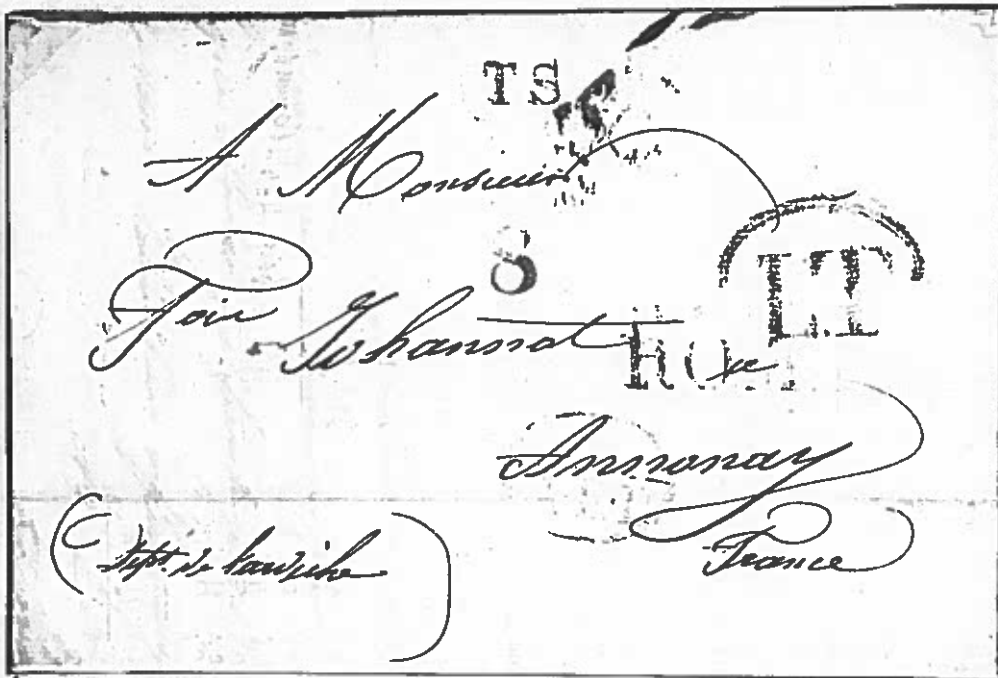 TS
A Monsieur
Johannot
Annonay
France
Dépt. de l'ardèche